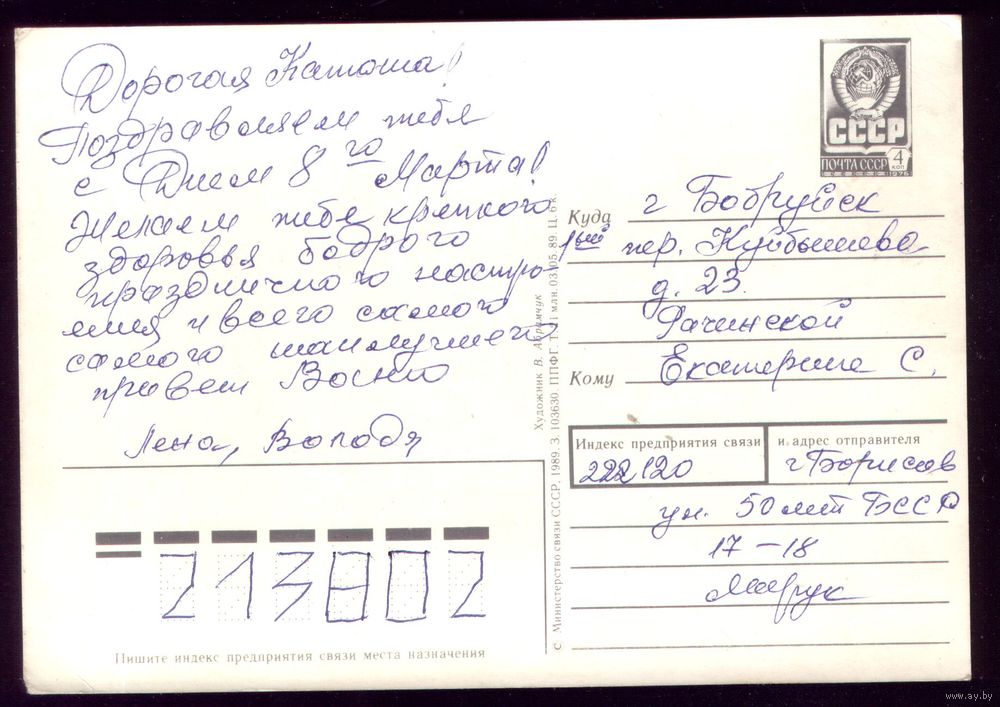 Дорогая Катюша!
Поздравляем тебя
с Днем 8го Марта!
Желаем тебе крепкого
здоровья бодрого
праздничного настро-
ения и всего самого
самого наилучшего
привет Васи
Лена, Володя
213802
Пишите индекс предприятия связи места назначения
© Министерство связи СССР. 1989. З. 103630. ППФГ. Т. 11 млн. 03.05.89. Ц. 6 к.
Художник В. Абрамчук
СССР
ПОЧТА СССР 4 КОП
1976
Куда г Бобруйск
1ый пер. Куйбышева
д. 23.
Рачинской
Кому Екатерине С.
Индекс предприятия связи
и адрес отправителя
222120
г Борисов
ул. 50 лет БССР
17-18
www.ay.by